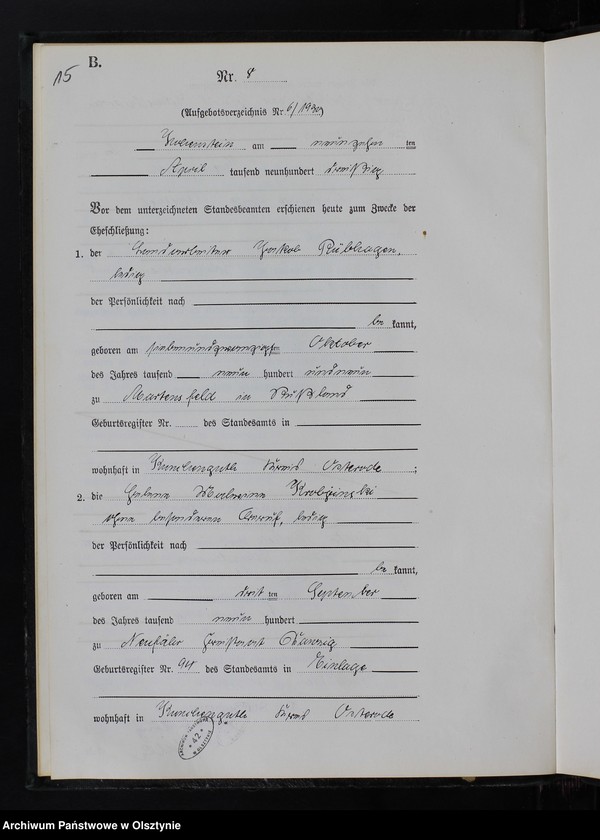 15
B.
Nr. 8
(Aufgebotsverzeichnis Nr. 6/1930)
Hohenstein am neunzehn ten
April tausend neunhundert dreißig
Vor dem unterzeichneten Standesbeamten erschienen heute zum Zwecke der
Eheschließung:
1. der Landarbeiter Jakob Rübhagen,
ledig
der Persönlichkeit nach
be kannt,
geboren am siebenundzwanzigsten Oktober
des Jahres tausend neun hundert undneun
zu Martensfeld in Rußland
Geburtsregister Nr. des Standesamts in
wohnhaft in Kunchenguth Kreis Osterode ;
2. die Helene
ohne besonderen Beruf, ledig
der Persönlichkeit nach
be kannt,
geboren am drit ten September
des Jahres tausend neun hundert
zu Freistaat Danzig
Geburtsregister Nr. 94 des Standesamts in Einlage
wohnhaft in Kunchenguth Kreis Osterode
42
Archiwum Państwowe w Olsztynie